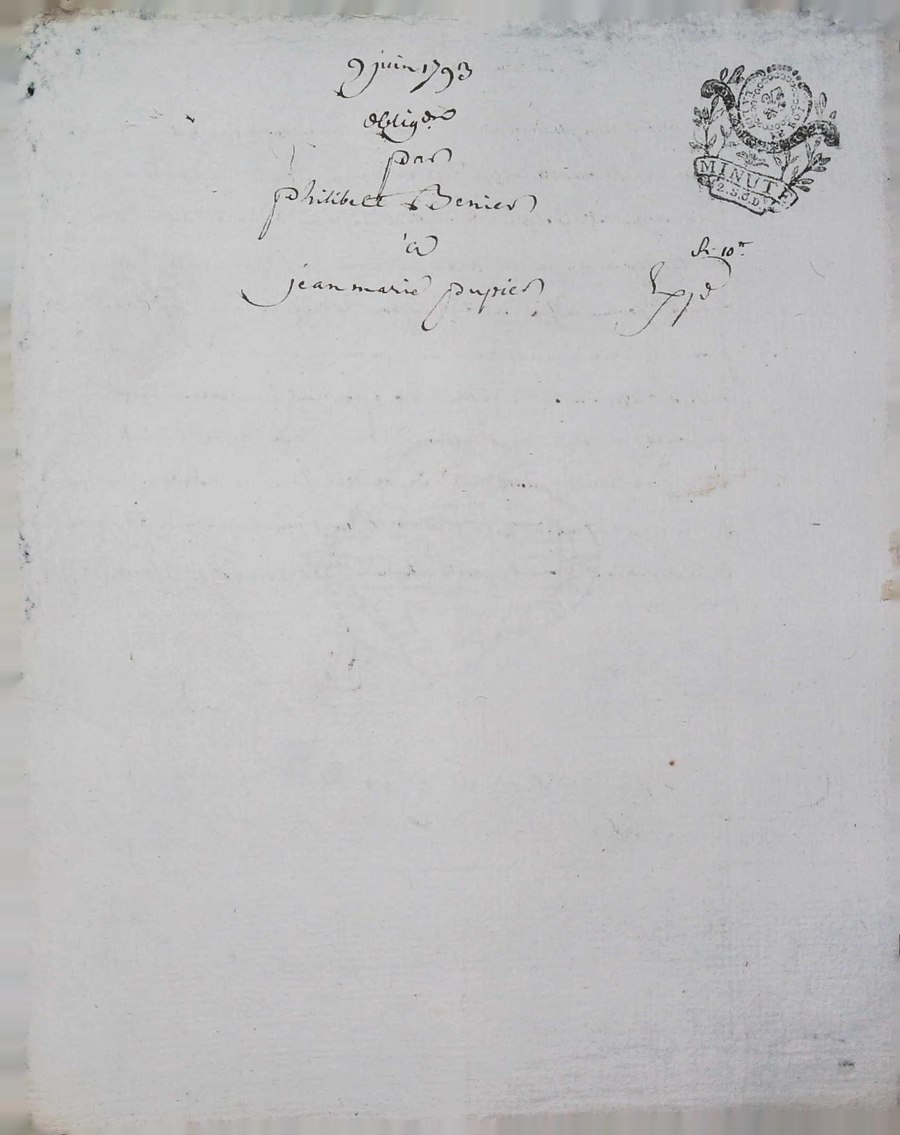 9 juin 1793
oblig.on
par
philibert Benier
à
jean marie pupier
MINUTE
2.S.6.D